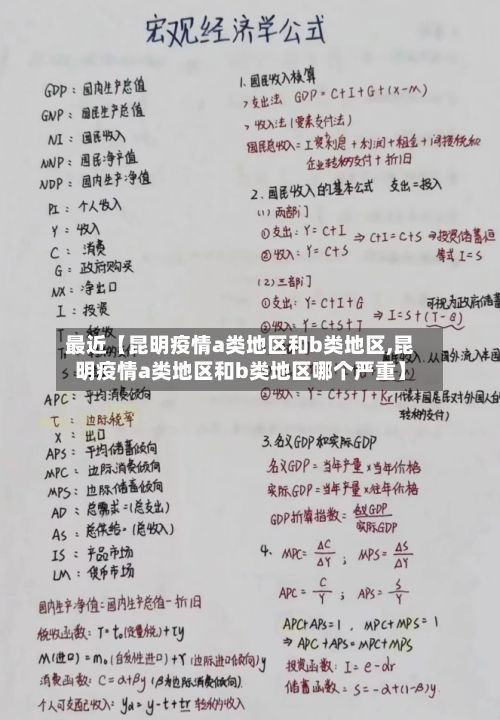 宏观经济学公式
GDP：国内生产总值
GNP：国民生产总值
NI：国民收入
NNP：国民净产值
NDP：国内生产净值
PI：个人收入
Y：收入
C：消费
G：政府购买
NX：净出口
I：投资
APC：平均消费倾向
τ：边际税率
X：出口
APS：平均储蓄倾向
MPC：边际消费倾向
MPS：边际储蓄倾向
AD：总需求=(总支出)
AS：总供给=(总收入)
IS：产品市场
LM：货币市场
国内生产净值=国内生产总值-折旧
税收函数：T=t₀(定量税)+τy
M(进口)=m₀(自发性进口)+γ(边际进口倾向)y
消费函数：C=α+βy(β为边际消费倾向)
个人可支配收入：yd=y-t+tr转移的收入
1.国民收入核算
>支出法 GDP=C+I+G+(X-M)
>收入法(要素支付法)
国民总收入=工资利息+利润+租金+间接税和
企业转移的支付+折旧
2.国民收入的基本公式 支出=投入
(1)两部门
①支出：Y=C+I
②收入：Y=C+S
⇒C+I=C+S⇒投资储蓄恒
等式I=S
(2)三部门
①支出：Y=C+I+G
②收入：Y=C+S+T
⇒I=S+(T-G)
可视为政府储蓄
最近【昆明疫情a类地区和b类地区,昆
明疫情a类地区和b类地区哪个严重】
收入、从国外流入本国
②收入：Y=C+S+T+Kr(代本国居民对外国人的
转移的支付)
3.名义GDP和实际GDP
名义GDP=当年产量×当年价格
实际GDP=当年产量×往年价格
GDP折算指数=名义GDP/实际GDP
4. MPC=ΔC/ΔY；MPS=ΔS/ΔY
APC=C/Y；APS=S/Y
APC+APS=1，MPC+MPS=1
⇒APC+APS=MPC+MPS
投资函数：I=e-dr
储蓄函数：S=-α+(1-β)y.